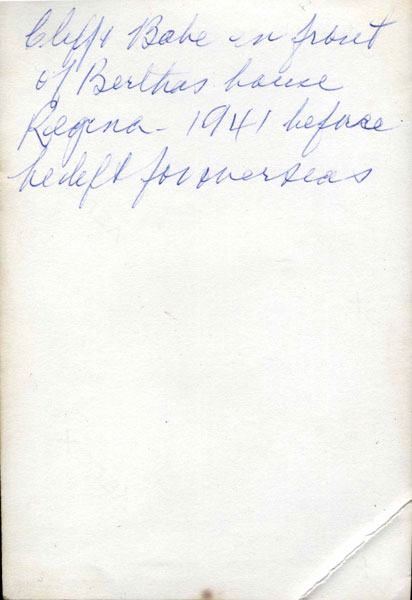 Cliff & Babe in front
of Berthas house
Regina - 1941 before
he left for overseas